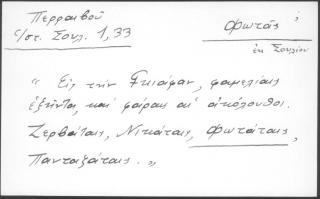 Περραιβοῦ
ἱστ. Σουλ. 1,33
Φωτάς
ἐκ Σουλίου
"Εἰς τὴν Γκιάφαν, φαμελίας
ἑξῆντα, καὶ φάραις αἱ ἀκόλουθοι.
Ζερβάταις, Νικάταις, Φωτάταις,
Πανταζάταις."